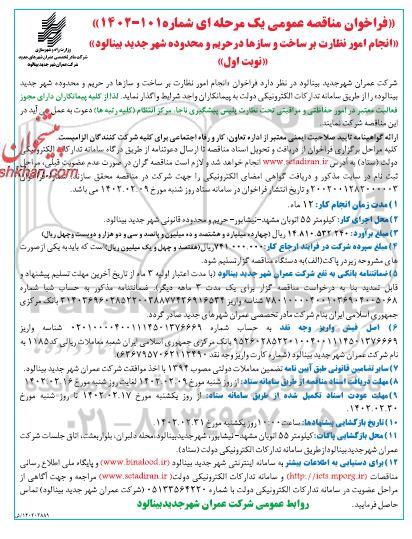 «فراخوان مناقصه عمومی یک مرحله ای شماره ۱۰۱-۱۴۰۲»
«انجام امور نظارت بر ساخت و سازها در حریم و محدوده شهر جدید بینالود»
«نوبت اول»
وزارت راه و شهرسازی
شرکت مادر تخصصی عمران شهرهای جدید
شرکت عمران شهر جدید بینالود
شرکت عمران شهرجدید بینالود در نظر دارد فراخوان «انجام امور نظارت بر ساخت و سازها در حریم و محدوده شهر جدید
بینالود» را از طریق سامانه تدارکات الکترونیکی دولت به پیمانکاران واجد شرایط واگذار نماید. لذا از کلیه پیمانکاران دارای مجوز
فعالیت معتبر در امور حفاظتی و مراقبتی تحت نظارت پلیس پیشگیری ناجا، مرکز انتظام (کلیه رتبه ها) دعوت به عمل می آید در
این مناقصه شرکت نمایند.
ارائه گواهینامه تایید صلاحیت ایمنی معتبر از اداره تعاون، کار و رفاه اجتماعی برای کلیه شرکت کنندگان الزامیست.
کلیه مراحل برگزاری فراخوان از دریافت و تحویل اسناد مناقصه تا ارسال دعوتنامه از طریق درگاه سامانه تدارکات الکترونیکی
دولت (ستاد) به آدرس www.setadiran.ir انجام خواهد شد و لازم است مناقصه گران در صورت عدم عضویت قبلی، مراحل
ثبت نام در سایت مذکور و دریافت گواهی امضای الکترونیکی را جهت شرکت در مناقصه محقق سازند. شماره فراخوان
۲۰۰۲۰۰۱۲۸۲۰۰۰۰۰۳ و تاریخ انتشار فراخوان در سامانه ستاد روز شنبه مورخ ۱۴۰۲.۰۲.۰۹ می باشد.
۱) مدت زمان انجام کار: ۱۲ ماه.
۲) محل اجرای کار: کیلومتر ۵۵ اتوبان مشهد-نیشابور- حریم و محدوده قانونی شهر جدید بینالود.
۳) مبلغ برآورد: ۱۴.۸۱۰.۵۳۲.۲۴۰ ریال (چهارده میلیارد و هشتصد و ده میلیون و پانصد و سی و دو هزار و دویست و چهل ریال)
۴) مبلغ سپرده شرکت در فرآیند ارجاع کار: ۷۴۱.۰۰۰.۰۰۰ ریال (هفتصد و چهل و یک میلیون ریال) است که باید به یکی از صورت
های مشروحه زیر در پاکت (الف) به دستگاه مناقصه گزار تسلیم شود.
۵) ضمانتنامه بانکی به نفع شرکت عمران شهر جدید بینالود (با مدت اعتبار اولیه ۳ ماه از تاریخ آخرین مهلت تسلیم پیشنهاد و
قابل تمدید بنا به درخواست مناقصه گزار برای یک مدت ۳ ماهه دیگر). ضمانتنامه مذکور به حساب شما شماره
شناسه واریز بانک مرکزی
جمهوری اسلامی ایران بنام شرکت مادر تخصصی عمران شهرهای جدید صادر گردد.
۶) اصل فیش واریز وجه نقد به حساب شماره شناسه واریز
بانک مرکزی جمهوری اسلامی ایران شعبه معاملات ریالی کد ۱۱۸۵ به
نام شرکت عمران شهر جدید بینالود (شماره کارت واریز وجه نقد)
۷) سایر تضامین قانونی طبق آیین نامه تضمین معاملات دولتی مصوب ۱۳۹۴ با اخذ موافقت شرکت عمران شهر جدید بینالود.
۸) مهلت دریافت اسناد مناقصه از طریق سامانه ستاد: از روز شنبه مورخ ۱۴۰۲.۰۲.۰۹ لغایت روز شنبه مورخ ۱۴۰۲.۰۲.۱۶
۹) مهلت عودت اسناد تکمیل شده از طریق سامانه ستاد: از روز یکشنبه مورخ ۱۴۰۲.۰۲.۱۷ تا روز شنبه مورخ
۱۴۰۲.۰۲.۳۰.
۱۰) تاریخ بازگشایی پیشنهادها: ساعت ۱۰:۰۰ روز یکشنبه مورخ ۱۴۰۲.۰۲.۳۱
۱۱) محل بازگشایی پاکات: کیلومتر ۵۵ اتوبان مشهد- نیشابور، شهر جدید بینالود، محله دلبران، بلوار بعثت، اتاق جلسات شرکت
عمران شهر جدید بینالود از طریق سامانه تدارکات الکترونیکی دولت (ستاد).
۱۲) برای دستیابی به اطلاعات بیشتر به سامانه اینترنتی شهر جدید بینالود (www.binalood.ir) و پایگاه ملی اطلاع رسانی
مناقصات (http://iets.mporg.ir) و سامانه تدارکات الکترونیکی دولت (www.setadiran.ir) مراجعه و جهت آگاهی از
مراحل عضویت در سامانه تدارکات الکترونیکی دولت با شماره ۰۵۱۳۳۵۶۴۲۲۰ (شرکت عمران شهر جدید بینالود) تماس
حاصل فرمایید.
روابط عمومی شرکت عمران شهرجدیدبینالود